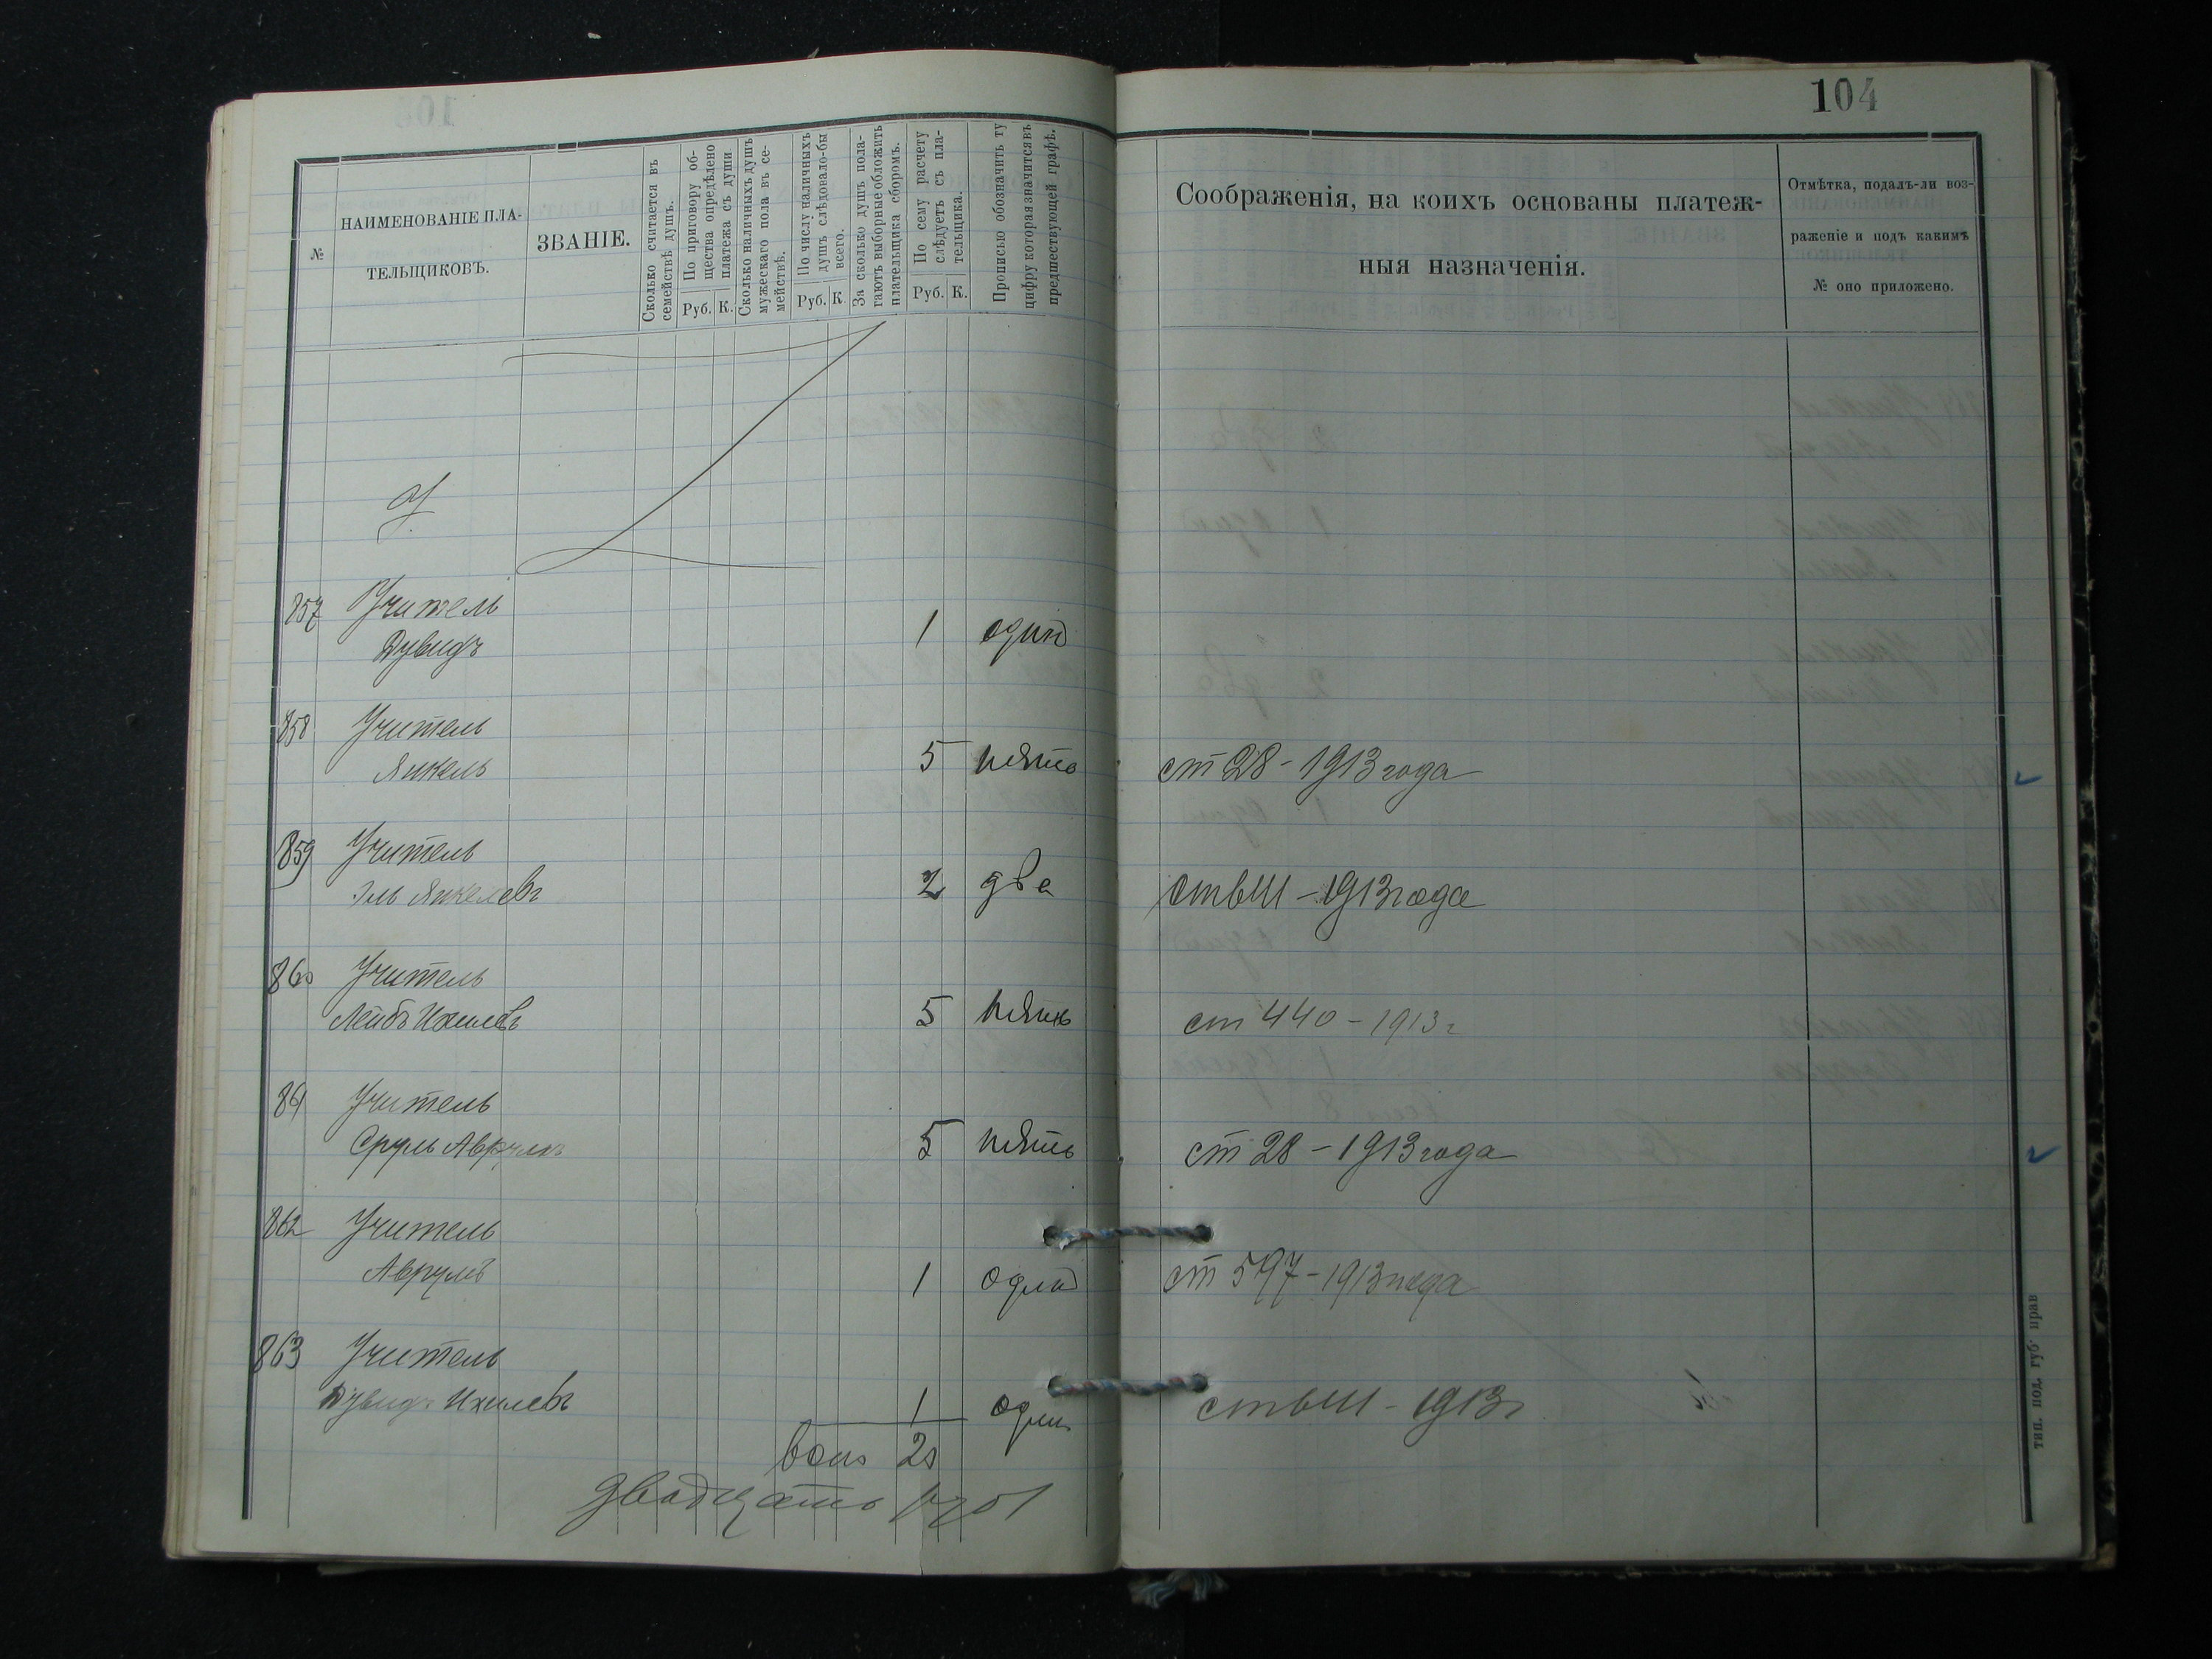 104
№
НАИМЕНОВАНІЕ ПЛА-
ТЕЛЬЩИКОВЪ.
ЗВАНІЕ.
Сколько считается въ
семействѣ душъ.
По приговору об-
щества опредѣлено
платежа съ души
Руб. К.
Сколько наличныхъ душъ
мужескаго пола въ се-
мействѣ.
По числу наличныхъ
душъ слѣдовало-бы
всего.
Руб. К
За сколько душъ пола-
гаютъ выборные обложить
плательщика сборомъ.
По сему расчету
слѣдуетъ съ пла-
тельщика.
Руб. К.
Прописью обозначить ту
цифру которая значится въ
предшествующей графѣ.
Соображенія, на коихъ основаны платеж-
ныя назначенія.
Отмѣтка, подалъ-ли воз-
раженіе и подъ какимъ
№ оно приложено.
У
857 Учитель
Дувидъ 1 один
858 Учитель
Янкель 5 пять ст 28 - 1913 года
859 Учитель
Эль Янкелевъ 2 два 1913 года
860 Учитель
Лейбъ Ихилевъ 5 пять ст 440 - 1913 г
861 Учитель
Сруль Аврумъ 5 пять ст 28 - 1913 года
862 Учитель
Аврумъ 1 один ст 597 - 1913 года
863 Учитель
Дувидъ Ихилевъ 1 один 1913 г
20
двадцать руб
тип. под. губ. прав